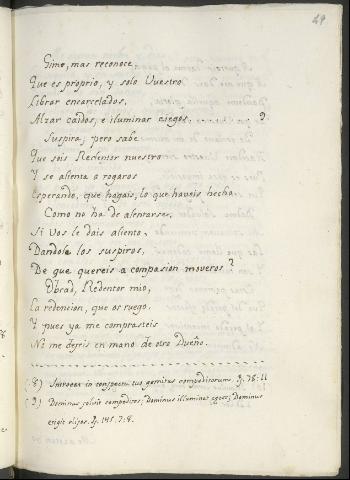 49
Gime, mas reconoce,
Que es proprio, y solo Vuestro
Librar encarcelados,
Alzar caidos, e iluminar ciegos. 9.
Suspira; pero sabe
Que sois Redentor nuestro
Y se alienta a rogaros
Esperando, que hagais, lo que haveis hecho.
Como no ha de alentarse,
Si Vos le dais aliento,
Dandole los suspiros,
De que quereis a compasion moveros?
Obrad, Redentor mio,
La redencion, que os ruego.
Y pues ya me comprasteis
No me dejeis en mano de otro Dueño.
(8) Introeat in conspectu tuo gemitus compeditorum. Ps. 78: 11
(9) Dominus solvit compeditos; Dominus illuminat cęcos; Dominus
erigit elisos. Ps. 145. 7: 8.